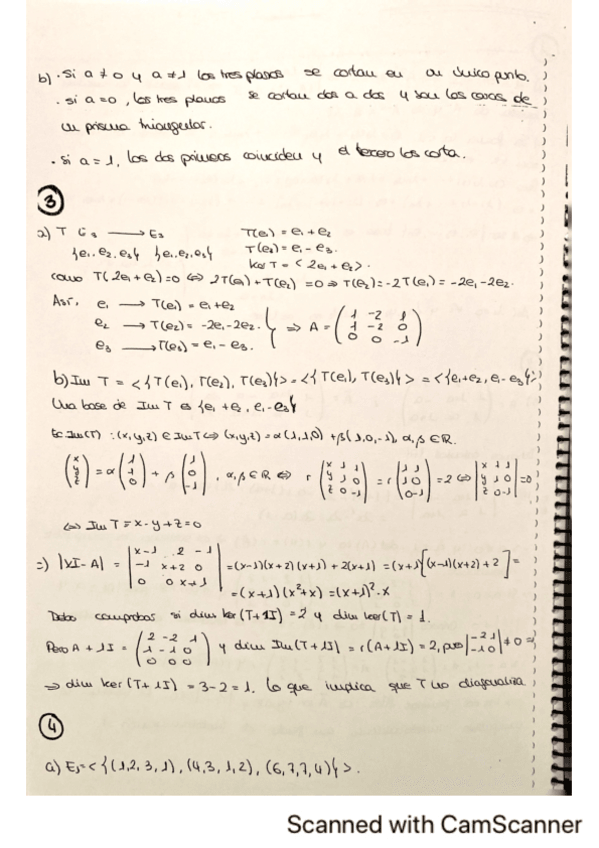 b) · Si a ≠ 0 y a ≠ 1 los tres planos se cortan en un único punto.
· si a = 0, los tres planos se cortan dos a dos y son las caras de
un prisma triangular.
· Si a = 1, los dos primeros coinciden y el tercero los corta.
3
a) T E₃ → E₃ T(e₁) = e₁ + e₂
{e₁, e₂, e₃} {e₁, e₂, e₃} T(e₃) = e₁ - e₃.
Ker T = < 2e₁ + e₂ >.
como T(2e₁ + e₂) = 0 ⇔ 2T(e₁) + T(e₂) = 0 ⇒ T(e₂) = -2T(e₁) = -2e₁ - 2e₂.
Así, e₁ → T(e₁) = e₁ + e₂
e₂ → T(e₂) = -2e₁ - 2e₂. } ⇒ A = ( 1 -2 1 / 1 -2 0 / 0 0 -1 )
e₃ → T(e₃) = e₁ - e₃.
b) Im T = < {T(e₁), T(e₂), T(e₃)} > = < {T(e₁), T(e₃)} > = < {e₁+e₂, e₁-e₃} >
Una base de Im T es {e₁ + e₂, e₁ - e₃}
Ec Im(T) : (x,y,z) ∈ Im T ⇔ (x,y,z) = α(1,1,0) + β(1,0,-1), α, β ∈ R.
( x / y / z ) = α ( 1 / 1 / 0 ) + β ( 1 / 0 / -1 ), α, β ∈ R ⇔ r ( x 1 1 / y 1 0 / z 0 -1 ) = r ( 1 1 / 1 0 / 0 -1 ) = 2 ⇔ | x 1 1 / y 1 0 / z 0 -1 | = 0
⇔ Im T = x - y + z = 0
c) |XI - A| = | x-1 2 -1 / -1 x+2 0 / 0 0 x+1 | = (x-1)(x+2)(x+1) + 2(x+1) = (x+1)[(x-1)(x+2) + 2] =
= (x+1)(x² + x) = (x+1)² · x
Debo comprobar si dim ker(T + 1I) = 2 y dim ker(T) = 1.
Pero A + 1I = ( 2 -2 1 / 1 -1 0 / 0 0 0 ) y dim Im(T + 1I) = r(A + 1I) = 2, pues | -2 1 / -1 0 | ≠ 0 ⇒
⇒ dim ker(T + 1I) = 3 - 2 = 1. Lo que implica que T no diagonaliza
4
a) E₁ = < {(1,2,3,1), (4,3,1,2), (6,7,7,4)} >.
Scanned with CamScanner